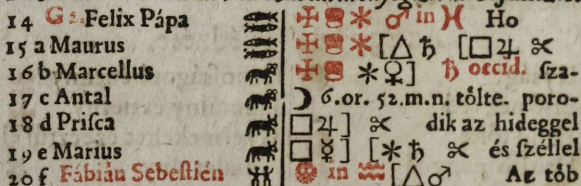 14 G Felix Pápa ✠ ✶ ♂ in ♓ Ho
15 a Maurus ✠ ✶ [△ ♄ [□ ♃ ✂
16 b Marcellus ✠ ✶ ♀] ♄ occid. sza-
17 c Antal ☽ 6. or. 52. m. n. tőlte. poro-
18 d Priſca □ ♃] ✂ dik az hideggel
19 e Marius □ ☿] [✶ ♄ ✂ és ſzéllel
20 f Fábián Sebeſtién ☉ in ♒ [△ ♂ Az töb